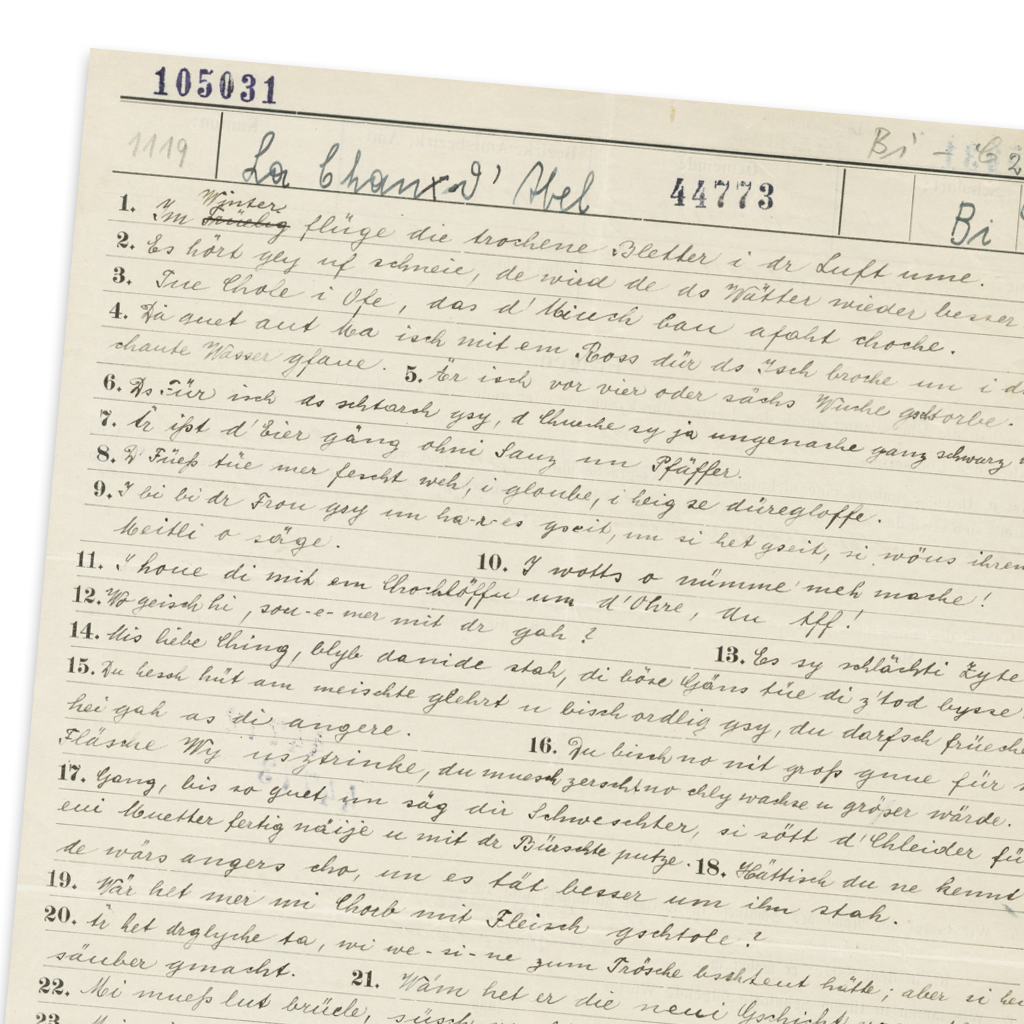 105031
1119 La Chaux d' Abel 44773 Bi - C 2
Bi
Winter
1. Im Früelig flüge die trochene Bletter i dr Luft ume.
2. Es hört gly uf schneie, de wird de ds Wätter wieder besser
3. Tue Chole i Ofe, das d' Miuch bau afaht choche.
4. Dä guet aut Ma isch mit em Ross dür ds Isch broche un i ds
chaute Wasser gfaue. 5. Är isch vor vier oder sächs Wuche gschtorbe.
6. Ds Für isch ds schtarch gsy, d Chueche sy ja ungenache ganz schwarz
7. Är ißt d'Eier gäng ohni Sauz un Pfäffer.
8. D' Füeß tüe mer fescht weh, i gloube, i heig se düregloffe.
9. I bi bi dr Frou gsy un ha-r-es gseit, un si het gseit, si wöus ihrem
Meitli o säge. 10. I wotts o nümme meh mache!
11. I houe di mit em Chochlöffu um d'Ohre, du Aff!
12. Wo geisch hi, sou-e-mer mit dr gah? 13. Es sy schlächti Zyte
14. Mis liebe Ching, blyb danide stah, di böse Gäns tüe di z'tod bysse
15. Du hesch hüt am meischte glehrt u bisch ordlig gsy, du darfsch früecher
hei gah as di angere. 16. Du bisch no nit groß gnue für
Fläsche Wy usztrinke, du muesch zersch no chly wachse u größer wärde.
17. Gang, bis so guet un säg dir Schweschter, si sött d'Chleider für
eui Muetter fertig näije u mit dr Bürschte putze. 18. Hättisch du ne kennt
de wärs angers cho, un es tät besser um ihn stah.
19. Wär het mer mi Chorb mit Fleisch gschtole?
20. Är het drglyche ta, wi we-si-ne zum Trösche bschteut hätte; aber si hei
säuber gmacht. 21. Wäm het er die neui Gschicht
22. Mi mueß lut brüele, süsch
23.